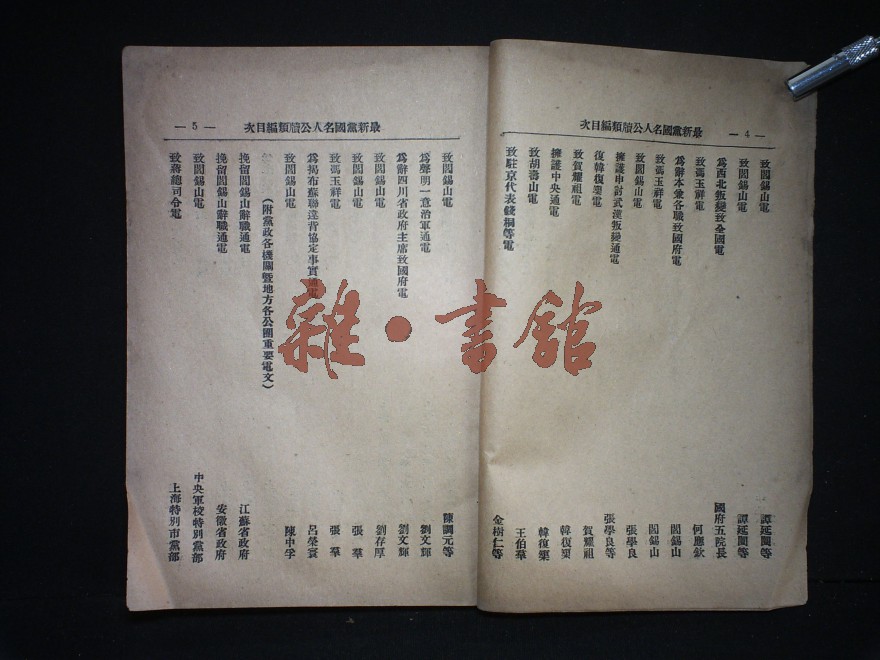 — 4 —
最新黨國名人公牘類編目次
致閻錫山電 譚延闓等
致閻錫山電 譚延闓等
爲西北叛變致全國電 國府五院長
致馮玉祥電 何應欽
爲辭本兼各職致國府電 閻錫山
致馮玉祥電 閻錫山
致閻錫山電 張學良
擁護申討武漢叛變通電 張學良等
復韓復榘電 賀耀祖
致賀耀祖電 韓復榘
擁護中央通電 韓復榘
致胡壽山電 王伯羣
致駐京代表錢桐等電 金樹仁等
— 5 —
最新黨國名人公牘類編目次
致閻錫山電 陳調元等
爲聲明一意治軍通電 劉文輝
爲辭四川省政府主席致國府電 劉文輝
致閻錫山電 劉存厚
致閻錫山電 張羣
致馮玉祥電 張羣
爲揭布蘇聯違背協定事實通電 呂榮寰
致閻錫山電 陳中孚
(附黨政各機關暨地方各公團重要電文)
挽留閻錫山辭職通電 江蘇省政府
挽留閻錫山辭職通電 安徽省政府
致閻錫山電 中央軍校特別黨部
致蔣總司令電 上海特別市黨部
雜·書館